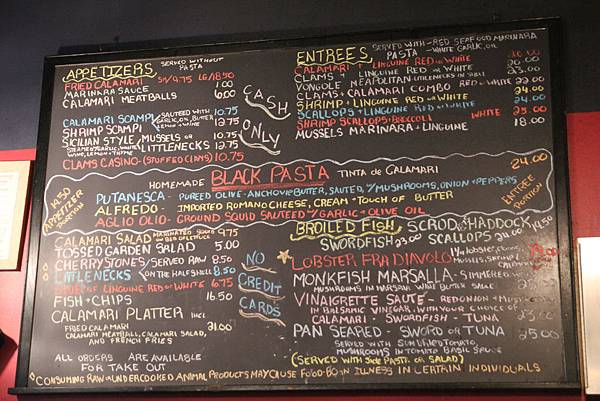 APPETIZERS SERVED WITHOUT PASTA
FRIED CALAMARI SM/9.75 LG/18.50
MARINARA SAUCE 1.00
CALAMARI MEATBALLS 6.00
CALAMARI SCAMPI 10.75
SHRIMP SCAMPI 12.75
SAUTEED WITH GARLIC, ON, BUTTER LEMON + WINE
SICILIAN STYLE / MUSSELS OR 10.75
LITTLENECKS 12.75
WINE, LEMON + THYME
CLAMS CASINO - (STUFFED CLAMS) 10.75
CASH ONLY
ENTREES SERVED WITH - RED SEAFOOD MARINARA
PASTA - WHITE GARLIC, OIL
CALAMARI + LINGUINE RED OR WHITE
CLAMS + LINGUINE RED OR WHITE
VONGOLE NEAPOLITAN LITTLENECKS IN SHELL
CLAMS + CALAMARI COMBO RED OR WHITE 22.00
SHRIMP + LINGUINE RED OR WHITE 24.00
SCALLOPS + LINGUINE RED OR WHITE 24.00
SHRIMP SCALLOPS + BROCCOLI WHITE 25.00
MUSSELS MARINARA + LINGUINE 18.00
HOMEMADE BLACK PASTA TINTA DE CALAMARI 24.00
14.50 APPETIZER PORTION
PUTANESCA - PUREED OLIVE - ANCHOVIE BUTTER, SAUTEED, W/ MUSHROOMS, ONION + PEPPERS
ALFREDO - IMPORTED ROMANO CHEESE, CREAM + TOUCH OF BUTTER
AGLIO OLIO - GROUND SQUID SAUTEED W/ GARLIC + OLIVE OIL
ENTREE PORTION
CALAMARI SALAD 9.75
TOSSED GARDEN SALAD 5.00
CHERRYSTONES / SERVED RAW 8.50
LITTLENECKS (ON THE HALF SHELL) 8.50
OF LINGUINE RED OR WHITE 6.75
FISH + CHIPS 16.50
CALAMARI PLATTER INCL
FRIED CALAMARI 21.00
CALAMARI MEATBALLS, CALAMARI SALAD,
AND FRENCH FRIES
ALL ORDERS ARE AVAILABLE
FOR TAKE OUT
NO CREDIT CARDS
BROILED FISH SCROD HADDOCK
SWORDFISH 23.00 SCALLOPS 24.00
LOBSTER FRA DIAVOLO
MONKFISH MARSALLA - SIMMERED
MUSHROOMS IN MARSALA WINE BUTTER SAUCE
VINAIGRETTE SAUTE - RED ONION +
IN BALSAMIC VINEGAR, WITH YOUR CHOICE OF
CALAMARI - SWORDFISH - TUNA
PAN SEARED - SWORD OR TUNA 25.00
SERVED WITH SUN DRIED TOMATO
MUSHROOMS IN TOMATO BASIL SAUCE
(SERVED WITH SIDE PASTA OR SALAD)
*CONSUMING RAW OR UNDERCOOKED ANIMAL PRODUCTS MAY CAUSE FOOD-BORN ILLNESS IN CERTAIN INDIVIDUALS